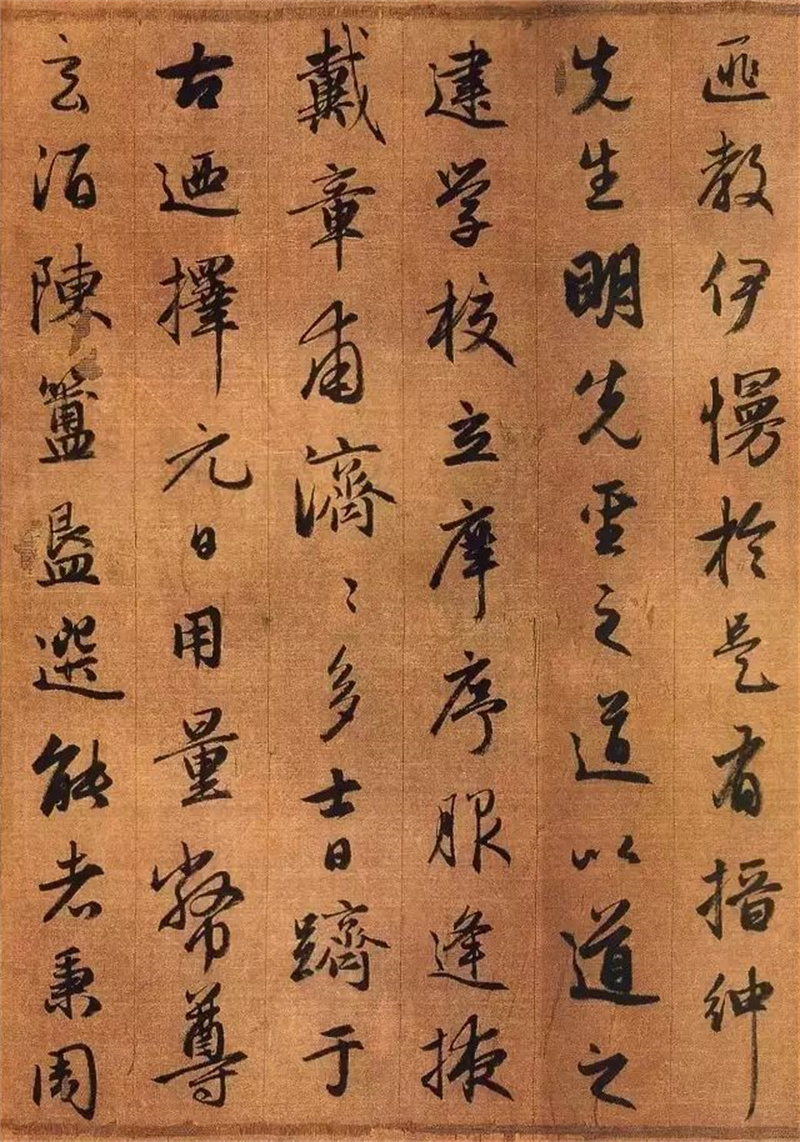 匪教伊慢於是有搢紳
先生明先聖之道以道之
建学校立庠序服逢掖
戴章甫濟〻多士日躋于
古迺擇元日用量幣尊
玄酒陳簠簋選能者秉周